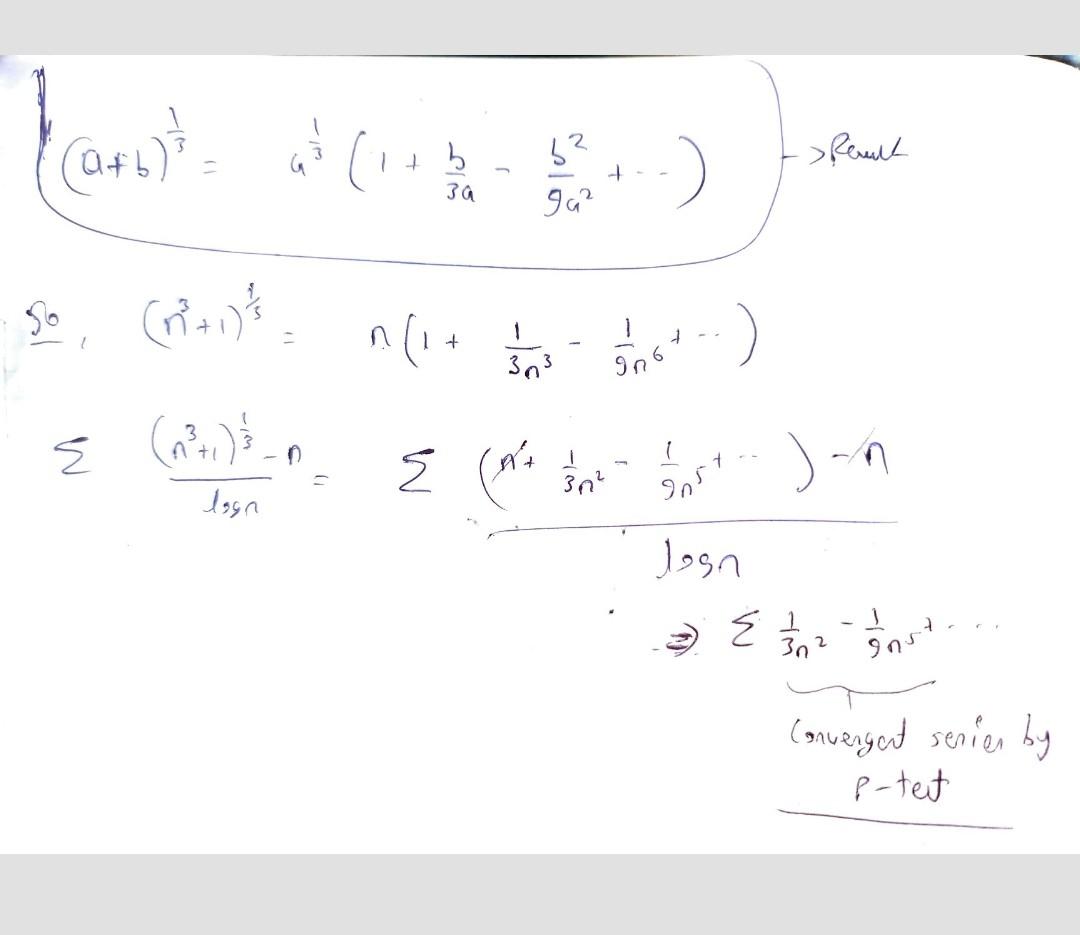 (a+b)^{1/3} = a^{1/3} (1 + b/3a - b²/9a² + ...) → Result
So, (n³+1)^{1/3} = n(1 + 1/3n³ - 1/9n⁶ + ...)
Σ ((n³+1)^{1/3} - n)/logn = Σ ((n + 1/3n² - 1/9n⁵ + ...) - n)/logn
⇒ Σ 1/3n² - 1/9n⁵ + ...
Convergent series by
P-test